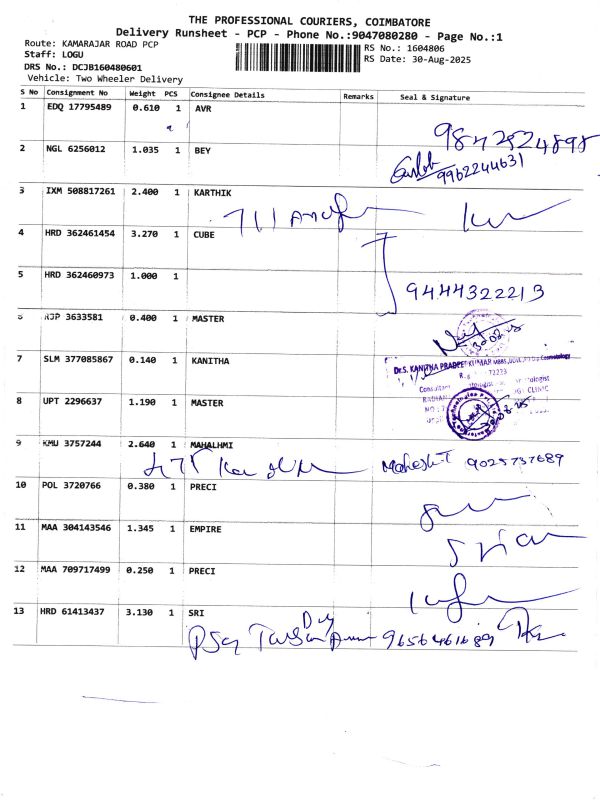 THE PROFESSIONAL COURIERS, COIMBATORE
Delivery Runsheet - PCP - Phone No.:9047080280 - Page No.:1
Route: KAMARAJAR ROAD PCP
RS No.: 1604806
Staff: LOGU
RS Date: 30-Aug-2025
DRS No.: DCJB160480601
Vehicle: Two Wheeler Delivery
S No Consignment No Weight PCS Consignee Details Remarks Seal & Signature
1 EDQ 17795489 0.610 1 AVR
2 NGL 6256012 1.035 1 BEY
9962244631
3 IXM 508817261 2.400 1 KARTHIK
4 HRD 362461454 3.270 1 CUBE
5 HRD 362460973 1.000 1
9444322213
6 RJP 3633581 0.400 1 MASTER
7 SLM 377085867 0.140 1 KANITHA
Dr.S. KANITHA PRADEEP KUMAR MBBS
8 UPT 2296637 1.190 1 MASTER
9 KMU 3757244 2.640 1 MAHALHMI
Mahesh.T 9025737689
10 POL 3720766 0.380 1 PRECI
11 MAA 304143546 1.345 1 EMPIRE
12 MAA 709717499 0.250 1 PRECI
13 HRD 61413437 3.130 1 SRI
9656461689